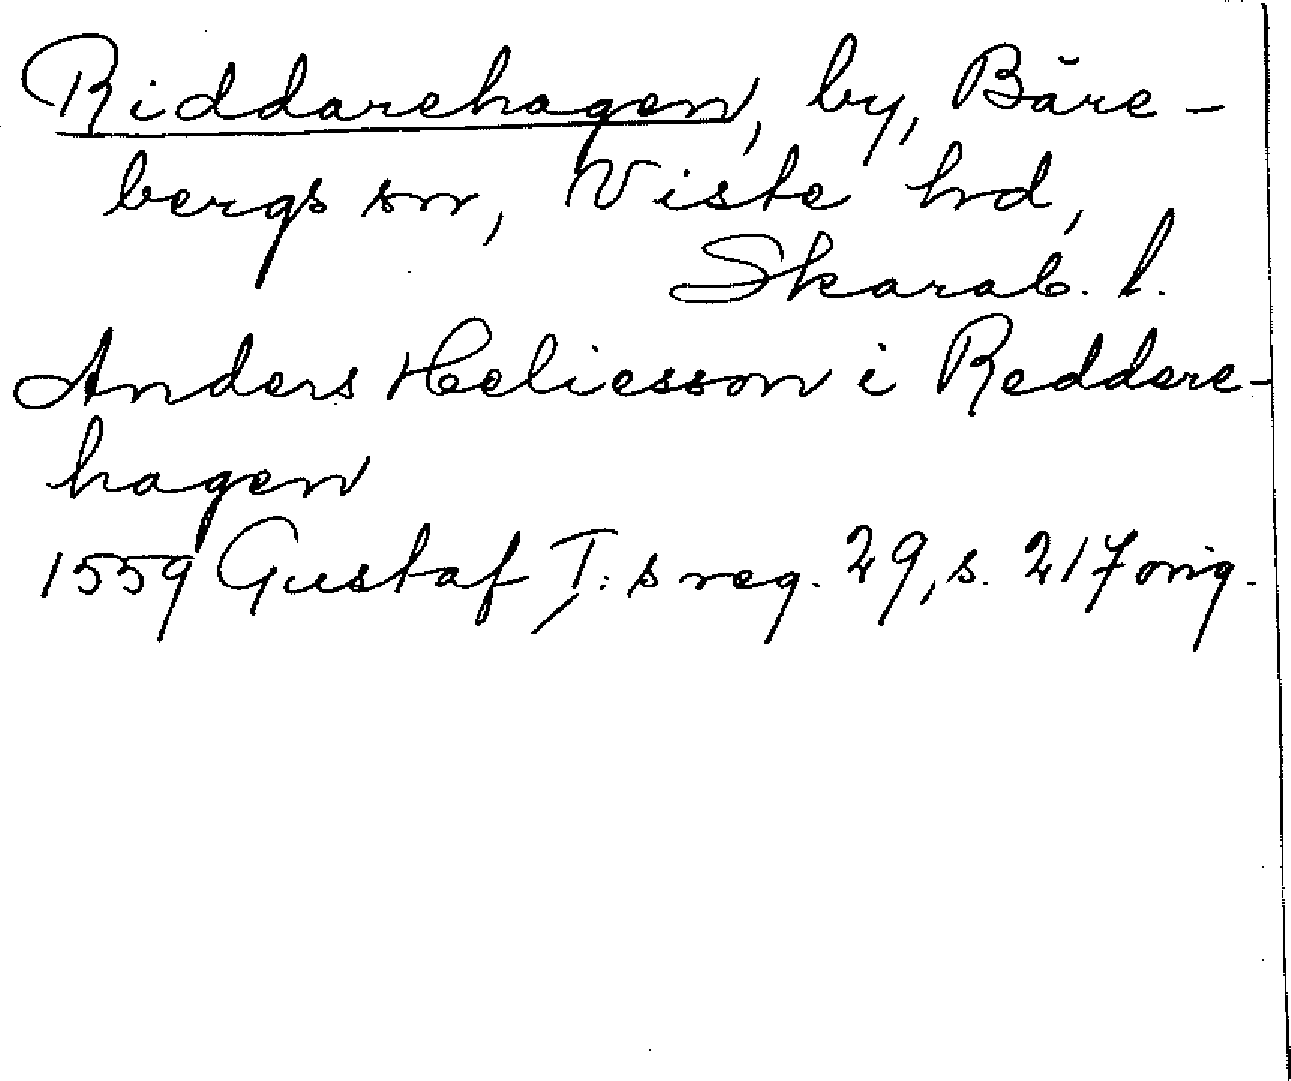 Riddarehagen, by, Bäre-
bergs sn, Viste hd,
Skarab. l.
Anders Heliesson i Reddere-
hagen
1559 Gustaf I:s reg. 29, s. 217 orig.